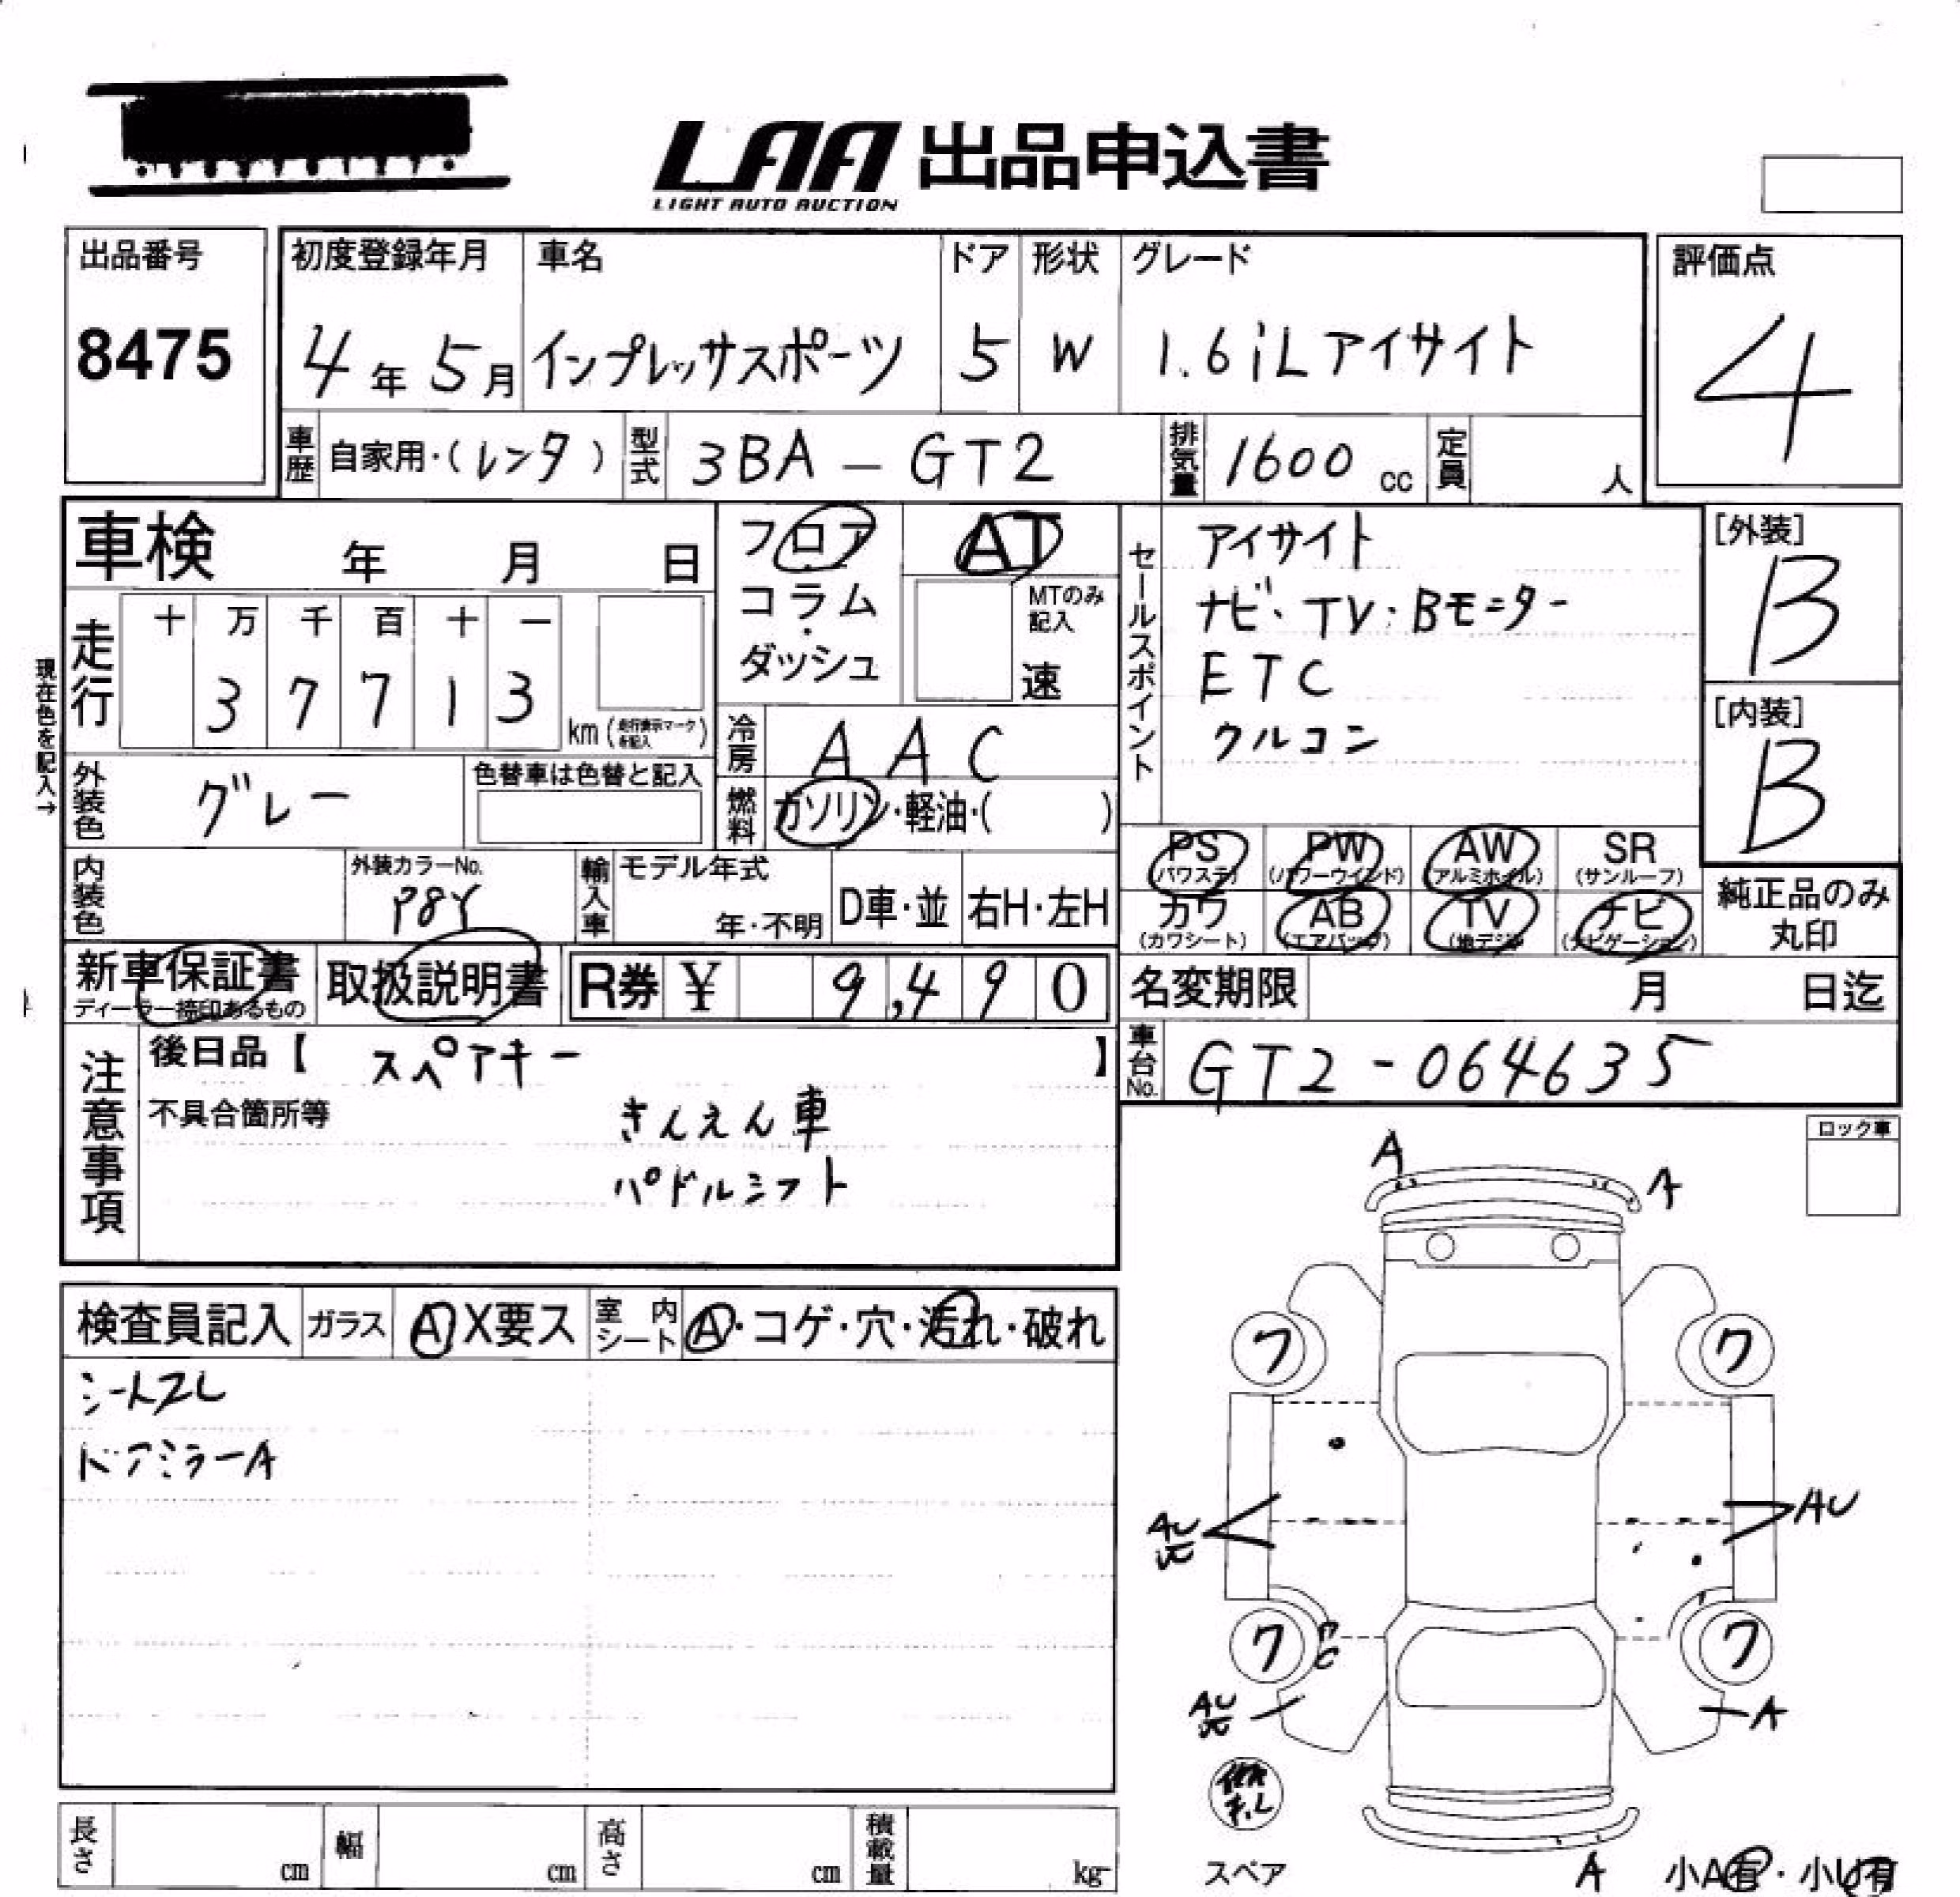 LAA 出品申込書
LIGHT AUTO AUCTION
出品番号
8475
初度登録年月
4年5月
車名
インプレッサスポーツ
ドア
5
形状
W
グレード
1.6iLアイサイト
評価点
4
車歴
自家用・(レンタ)
型式
3BA-GT2
排気量
1600cc
定員
人
車検 年 月 日
フロア
コラム
・
ダッシュ
AT
MTのみ記入
速
セールスポイント
アイサイト
ナビ・TV・Bモニター
ETC
クルコン
[外装]
B
[内装]
B
現在色を記入→
走行
十 万 千 百 十 一
3 7 7 1 3
km(走行表示マークを記入)
冷房
AAC
外装色
グレー
色替車は色替と記入
燃料
ガソリン・軽油・( )
PS
(パワステ)
PW
(パワーウインド)
AW
(アルミホイル)
SR
(サンルーフ)
カワ
(カワシート)
AB
(エアバッグ)
TV
(地デジ)
ナビ
(ナビゲーション)
純正品のみ
丸印
内装色
外装カラーNo.
P8Y
輸入車
モデル年式
年・不明
D車・並
右H・左H
新車保証書
ディーラー捺印あるもの
取扱説明書
R券 ¥ 9,490
名変期限 月 日迄
車台No.
GT2-064635
注意事項
後日品【 スペアキー 】
不具合箇所等
きんえん車
パドルシフト
ロック車
検査員記入
ガラス
A X要ス
室内シート
A・コゲ・穴・汚れ・破れ
シートスレ
ドアミラーA
A
A
ワ
ワ
AU
AU
ワ
ワ
AU
A
スペア
A
小A有・小U有
長さ cm
幅 cm
高さ cm
積載量 kg